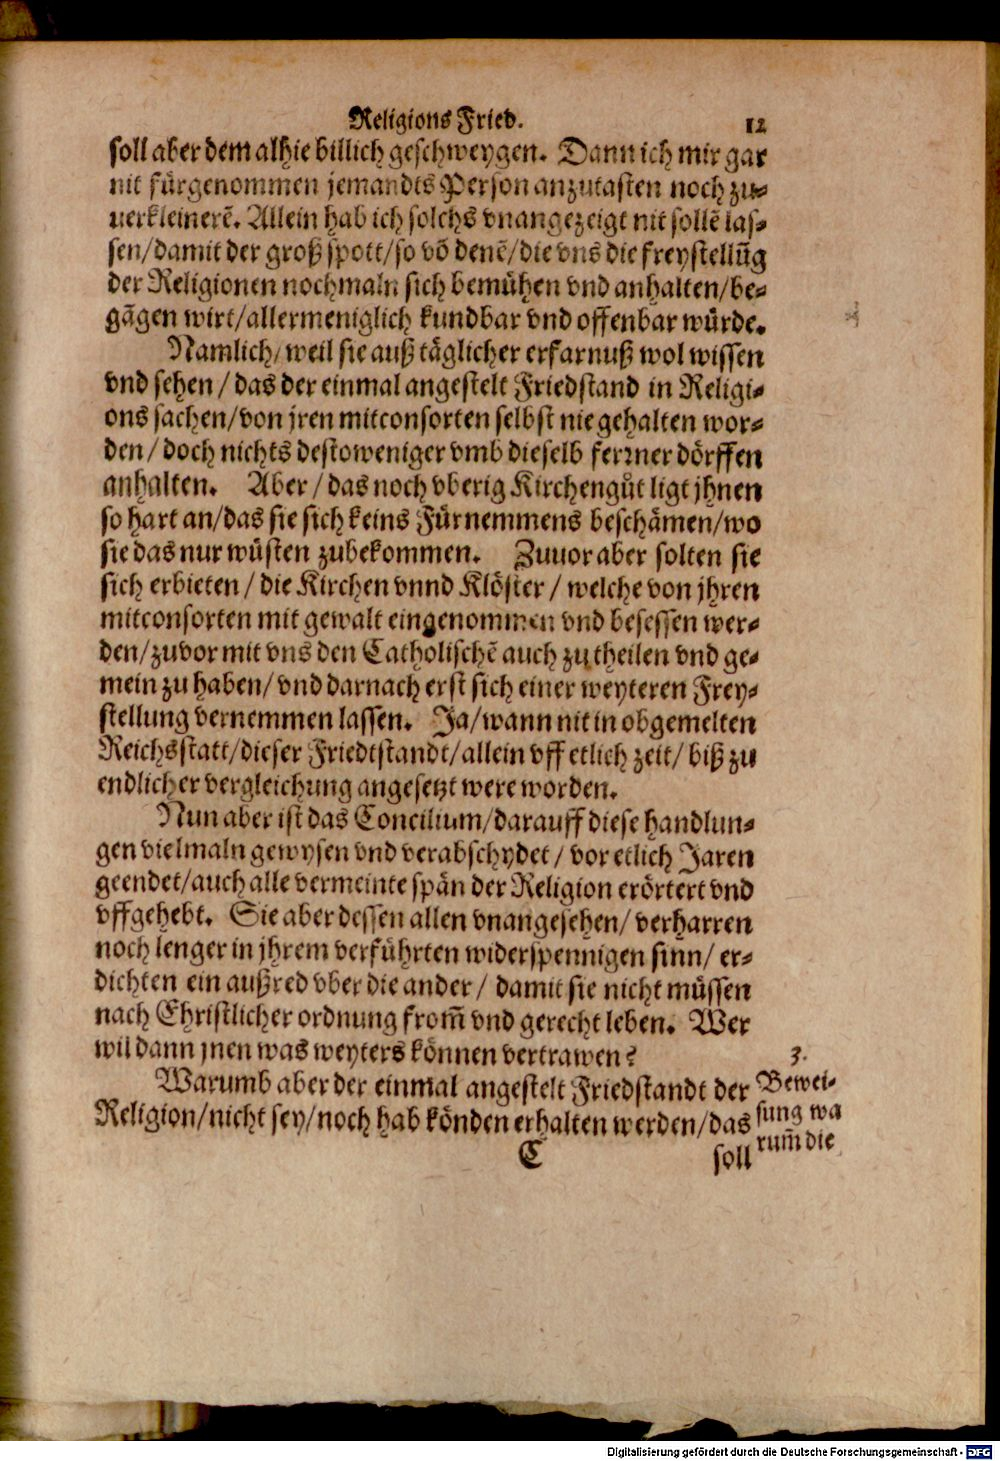 Religions Fried. 12
soll aber dem alhie billich geschweygen. Dann ich mir gar
nit fürgenommen jemandts Person anzutasten noch zu-
uerkleinerẽ. Allein hab ich solchs vnangezeigt nit sollẽ las-
sen/damit der groß spott/so võ denẽ/die vns die freystellũg
der Religionen nochmaln sich bemühen vnd anhalten/be-
gãgen wirt/allermeniglich kundbar vnd offenbar würde.
Namlich/weil sie auß täglicher erfarnuß wol wissen
vnd sehen/das der einmal angestelt Friedstand in Religi-
ons sachen/von jren mitconsorten selbst nie gehalten wor-
den/doch nichts destoweniger vmb dieselb ferrner dörffen
anhalten. Aber/das noch vberig Kirchengůt ligt jhnen
so hart an/das sie sich keins Fürnemmens beschämen/wo
sie das nur wüsten zubekommen. Zuuor aber solten sie
sich erbieten/die Kirchen vnnd Klöster/welche von jhren
mitconsorten mit gewalt eingenommen vnd besessen wer-
den/zuvor mit vns den Catholischẽ auch zu theilen vnd ge-
mein zu haben/vnd darnach erst sich einer weyteren Frey-
stellung vernemmen lassen. Ja/wann nit in obgemelten
Reichsstatt/dieser Friedtstandt/allein vff etlich zeit/biß zu
endlicher vergleichung angesetzt were worden.
Nun aber ist das Concilium/darauff diese handlun-
gen vielmaln gewysen vnd verabschydet/vor etlich Jaren
geendet/auch alle vermeinte spän der Religion erörtert vnd
vffgehebt. Sie aber dessen allen vnangesehen/verharren
noch lenger in jhrem verführten widerspennigen sinn/er-
dichten ein außred vber die ander/damit sie nicht müssen
nach Christlicher ordnung from̃ vnd gerecht leben. Wer
wil dann jnen was weyters können vertrawen?
Warumb aber der einmal angestelt Friedstandt der
Religion/nicht sey/noch hab könden erhalten werden/das
3.
Bewei-
sung wa
rum̃ die
C soll
Digitalisierung gefördert durch die Deutsche Forschungsgemeinschaft - DFG